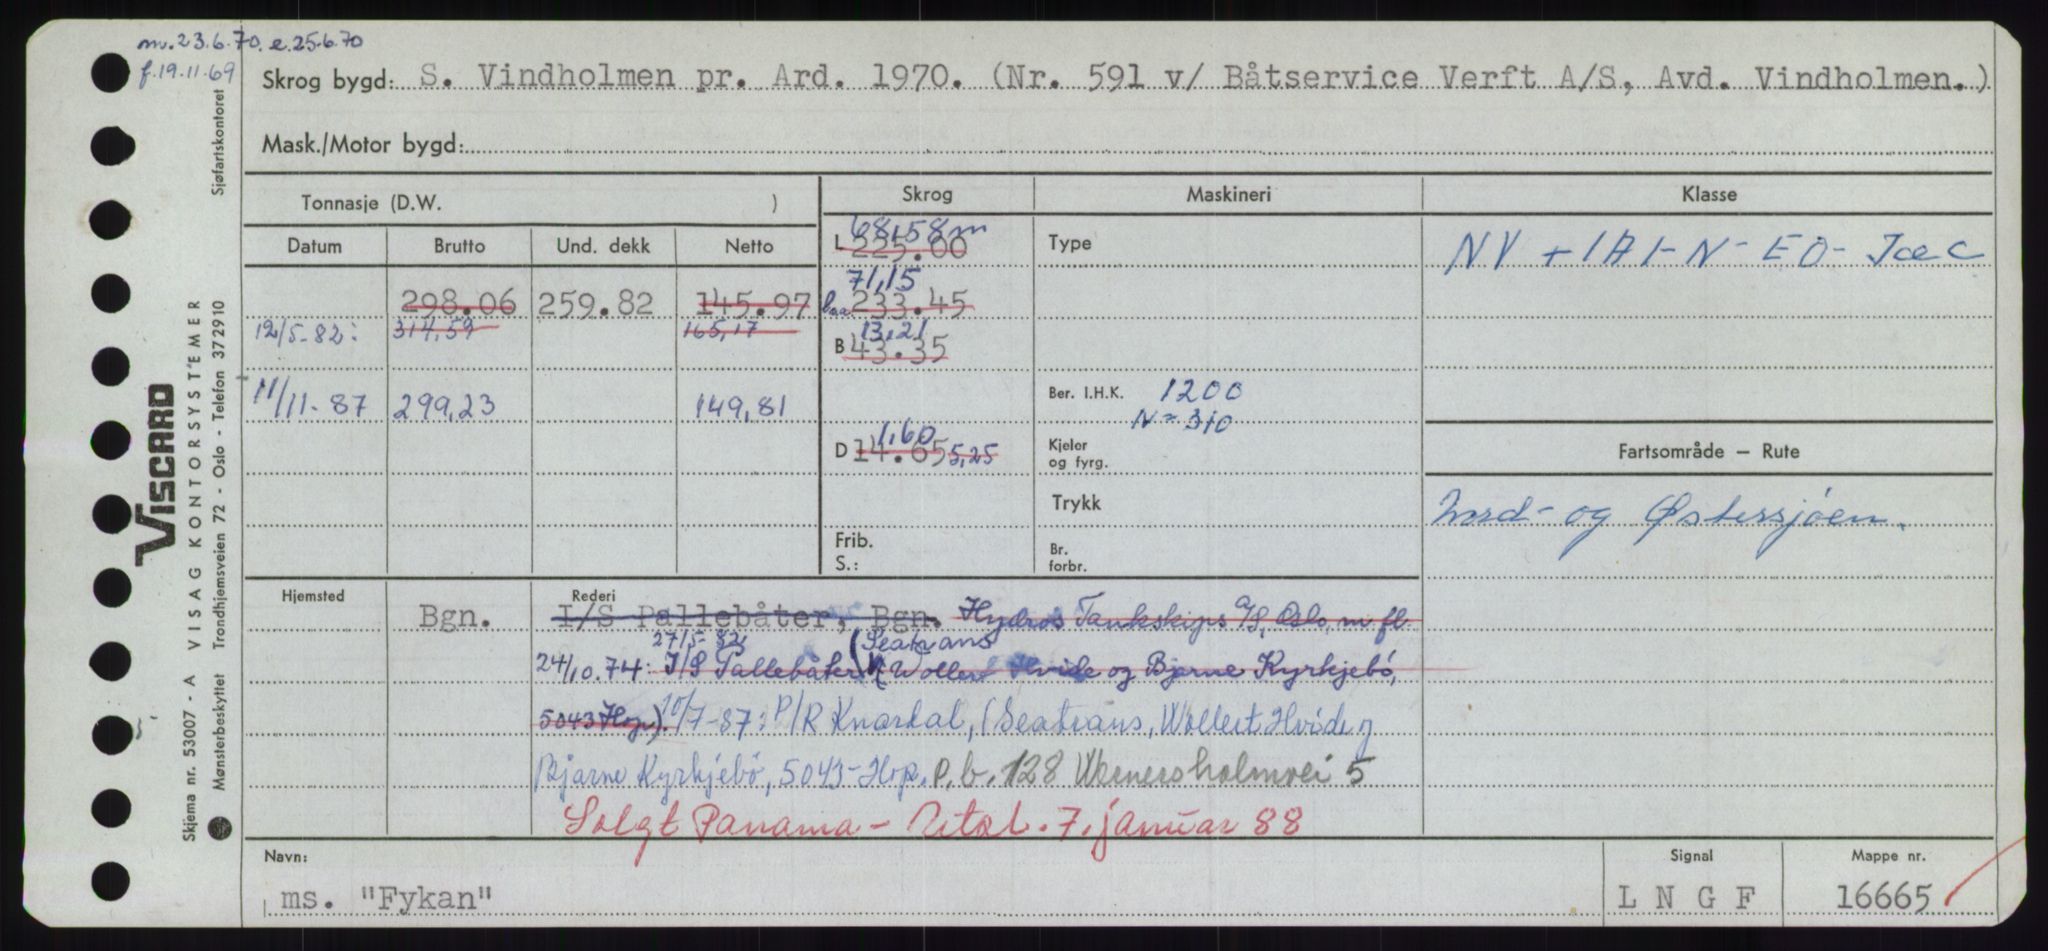 mv. 23.6.70. e. 25.6.70
f. 19.11.69
Skrog bygd: S. Vindholmen pr. Ard. 1970. (Nr. 591 v/ Båtservice Verft A/S, Avd. Vindholmen.)
Mask./Motor bygd:
Tonnasje (D.W. ) Skrog Maskineri Klasse
Datum Brutto Und. dekk Netto
68,58m
L 225.00 Type NV + 1A1-N-EO-Ice C
71,15
298.06 259.82 145.97 baa 233.45
12/5-82: 314,59 165,17 13,21
B 43.35
11/11-87 299,23 149,81 Ber. I.H.K. 1200
N = 310
1,60
D 14.65 5,25 Kjeler og fyrg. Fartsområde — Rute
Trykk Nord- og Østersjøen.
Frib.
S.:
Br. forbr.
Hjemsted Rederi
Bgn. I/S Pallebåter, Bgn. Hydros Tankskips A/S, Oslo, m fl
27/5-82 (Seatrans
24/10.74: I/S Pallebåter Wollert Hvide og Bjarne Kyrkjebø,
5043 Hop). 10/7-87: P/R Knardal, (Seatrans, Wollert Hvide og
Bjarne Kyrkjebø, 5043-Hop, P.b. 128 Wernersholmvei 5
Solgt Panama - 7. januar 88
Navn: Signal Mappe nr.
ms. "Fykan" L N G F 16665
VISCARD
VISAG KONTORSYSTEMER
Skjema nr. 53007 - A
Mønsterbeskyttet Trondhjemsveien 72 - Oslo - Telefon 372910 Sjøfartskontoret